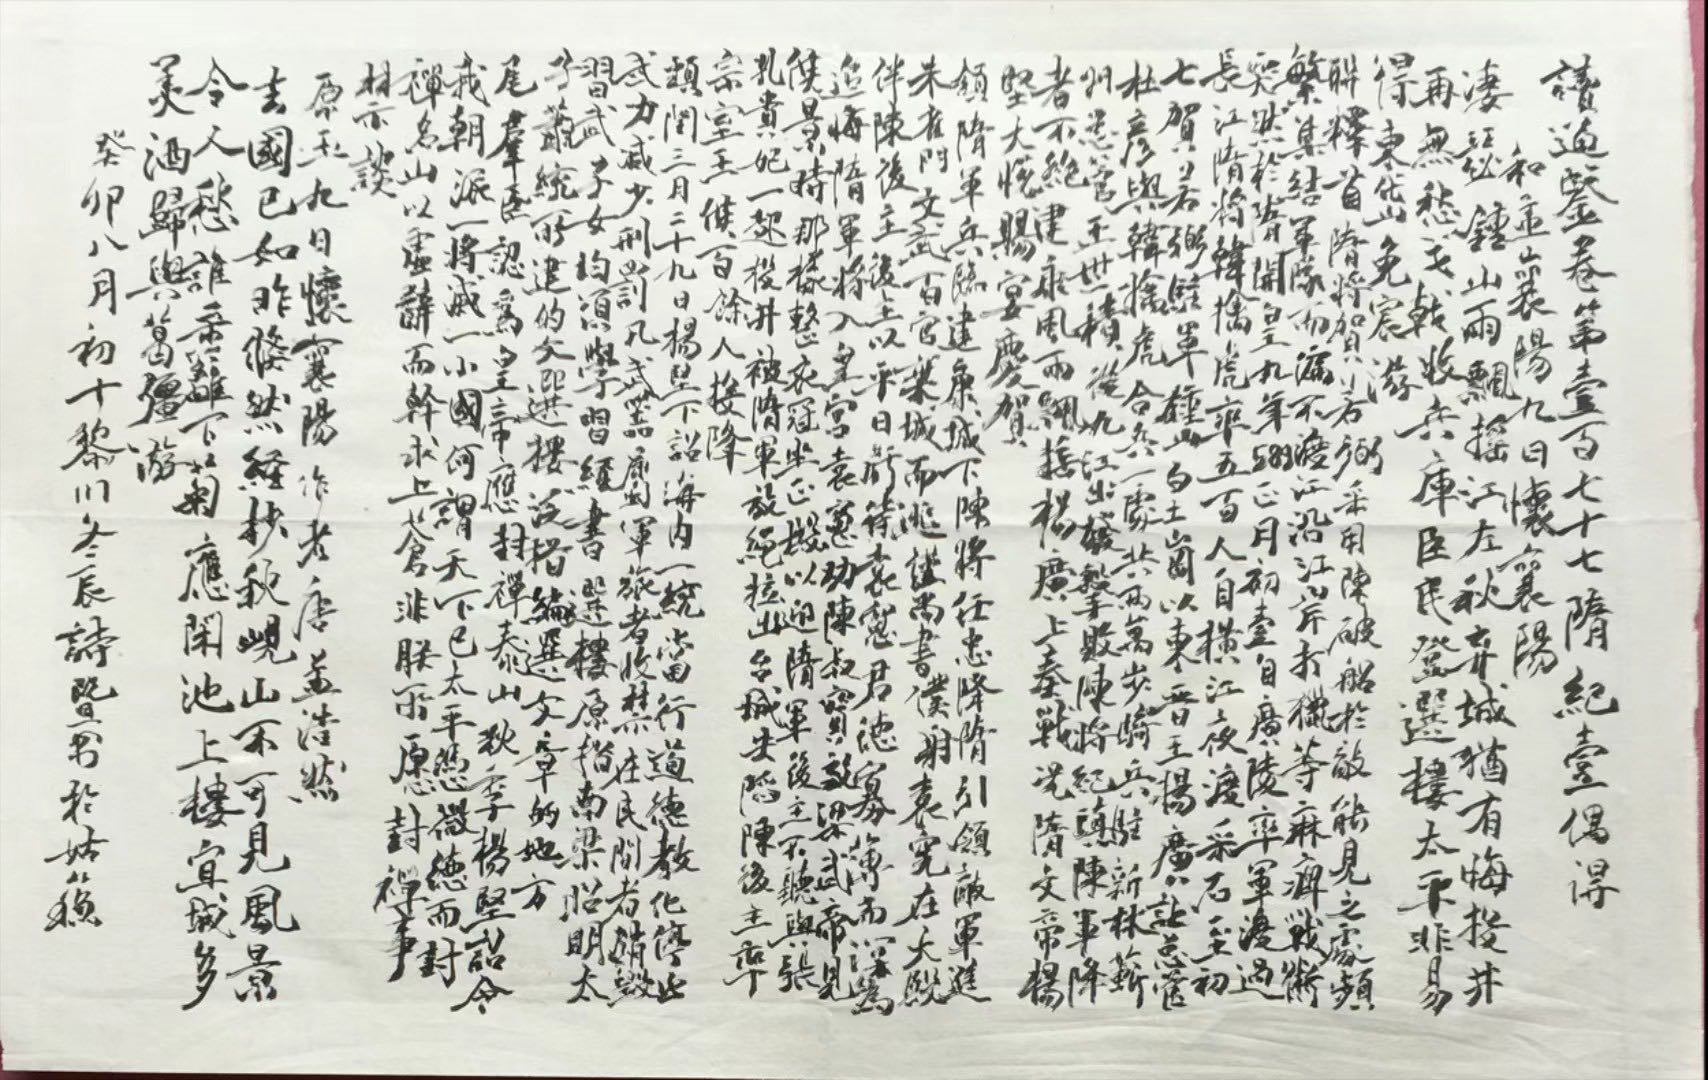 讀通鑒卷第壹百七十七隋紀壹偶得
和孟襄陽九日懷襄陽
淒迷鍾山雨飄搖江左秋弃城猶有悔投井
再無愁戈戟收兵庫臣民登選樓太平非易
得東岱山免宸游
聯釋首隋將賀若弼采用陳破船於敵能見之處頻
繁集結軍隊而滿不渡江沿江岸打獵等麻痹戰術
突然於隋開皇九年589正月初壹自廣陵率軍渡過
長江隋將韓擒虎率五百人自橫江夜渡采石至初
七賀若弼駐軍鍾山白土崗以東晋王楊廣派總管
杜彥與韓擒虎合兵一處共兩萬步騎兵駐新林蘄
州總管王世積從九江出發擊敗陳將紀瑱陳軍降
者不絕建康風雨飄搖楊廣上奏戰况隋文帝楊
堅大悅賜宴慶賀
領隋軍兵臨建康城下陳將任忠降隋引領敵軍進
朱雀門文武百官棄城而逃谨尚書僕射袁憲在大殿
伴陳後主後主以平日虧待袁憲君德寡薄而深為
追悔隋軍將入皇宮袁憲勸陳叔寶效梁武帝見
侯景時那樣整衣冠坐正殿以迎隋軍後主不聽與張
孔貴妃一起投井被隋軍放繩拉出台城失陷陳後主率
宗室王侯百餘人投降
類閏三月二十九日楊堅下詔海内一統當行道德教化停止
武力减少刑罰凡武器屬軍旅者收禁在民間者銷毀
習武子女均須學習經書 選樓原指南梁昭明太
子蕭統所建的文選樓沒指編選文章的地方
尾羣臣認為皇帝應封禪泰山狄季楊堅詔令
我朝派一將滅一小國何謂天下已太平憑微德而封
禪名山以虛辭而幹求上蒼非朕所愿封禪事
林示談
原玉九日懷襄陽作者唐孟浩然
去國已如昨倏然經杪秋峴山不可見風景
令人愁誰采籬下菊應閑池上樓宜城多
美酒歸與葛彊游
癸卯八月初十黎川冬辰詩暨書於姑蘇